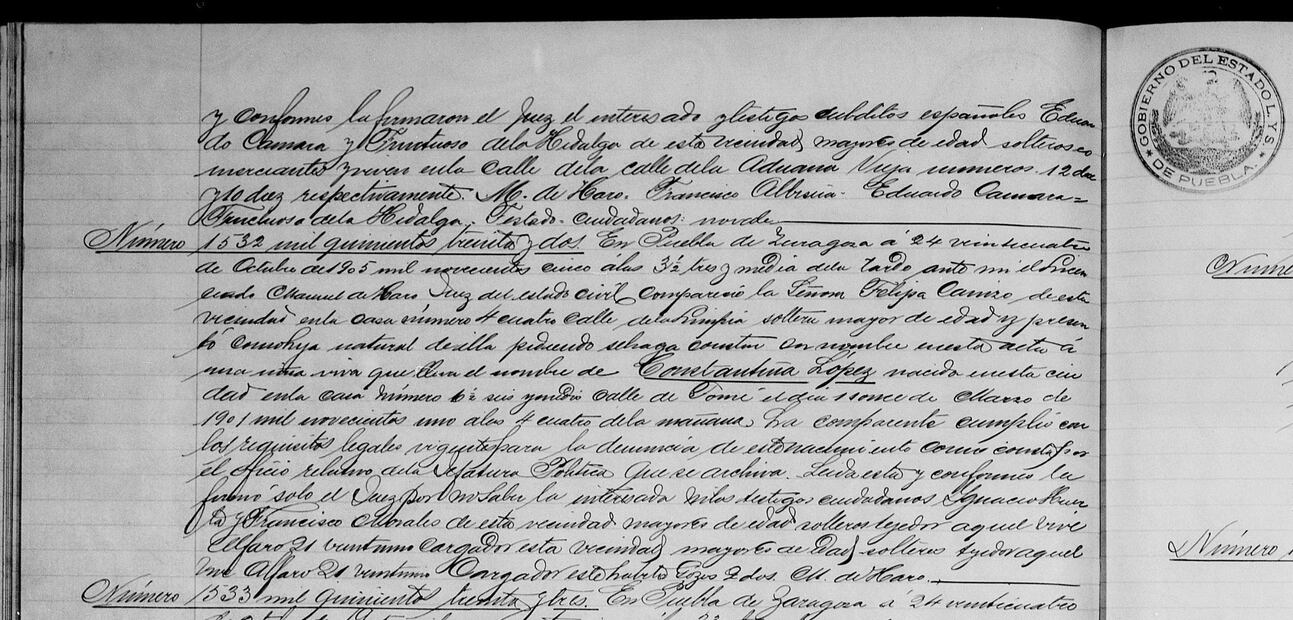 y conformes la firmaron el Juez el interesado y testigos subditos españoles Eduar
do Camara y Fructuoso de la Hidalga de esta vecindad mayores de edad solteros co
merciantes y viven en la calle de la calle de la Aduana Vieja numeros 12 doce
y 10 diez respectivamente. M. de Haro. Francisco Eduardo Camara =
Fructuoso de la Hidalga. Testado. ciudadanos: no vale
Número 1532 mil quinientos treinta y dos. En Puebla de Zaragoza á 24 veinticuatro
de Octubre de 1905 mil novecientos cinco á las 3½ tres y media de la tarde ante mi el Licen
ciado Manuel de Haro Juez del estado civil compareció la Señora Felipa de esta
vecindad en la casa número 4 cuatro calle de la Limpia soltera mayor de edad y presen
tó como hija natural de ella pidiendo se haga constar su nombre en esta acta á
una niña viva que lleva el nombre de Constantina López nacida en esta ciu
dad en la casa número 6½ seis y medio calle de Tomé el día 11 once de Marzo de
1901 mil novecientos uno a las 4 cuatro de la mañana. La compareciente cumplió con
los requisitos legales vigentes para la denuncia de este nacimiento como consta por
el oficio relativo de la Jefatura Politica que se archiva. Leida esta y conformes la
firmó solo el Juez por no saber la interesada ni los testigos ciudadanos Ignacio Huer
ta y Francisco Morales de esta vecindad mayores de edad solteros tejedor aquel vive
Alfaro 21 veintiuno cargador esta vecindad mayores de edad solteros tejedor aquel
vive Alfaro 21 veintiuno Cargador este Huerta dos. M. de Haro.
Número 1533 mil quinientos treinta y tres. En Puebla de Zaragoza á 24 veinticuatro
GOBIERNO DEL ESTADO L. Y S.
DE PUEBLA.
Número
Número